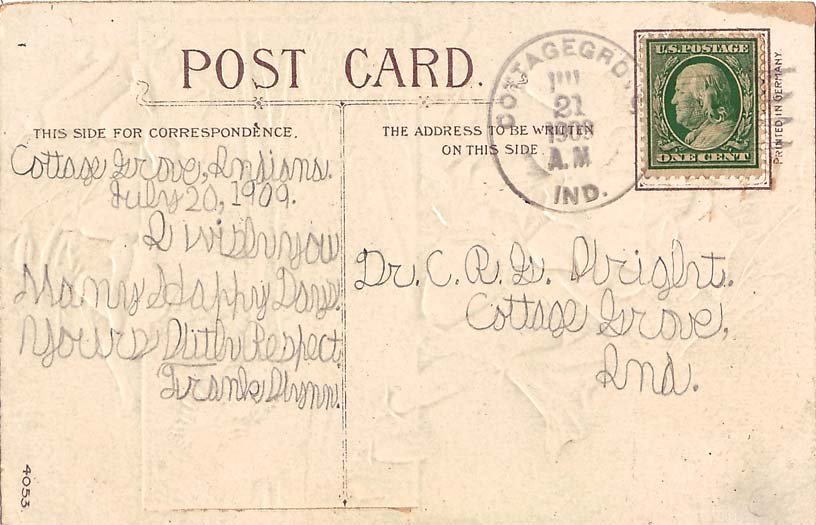 POST CARD.
THIS SIDE FOR CORRESPONDENCE.
THE ADDRESS TO BE WRITTEN
ON THIS SIDE
Cottage Grove, Indiana.
July 20, 1909.
I wish you
Many Happy Days.
Yours With Respect
Frank
4053
COTTAGEGRO
21
1909
A.M
IND.
U.S. POSTAGE
ONE CENT
PRINTED IN GERMANY.
Dr. C. R. G. Wright.
Cottage Grove,
Ind.